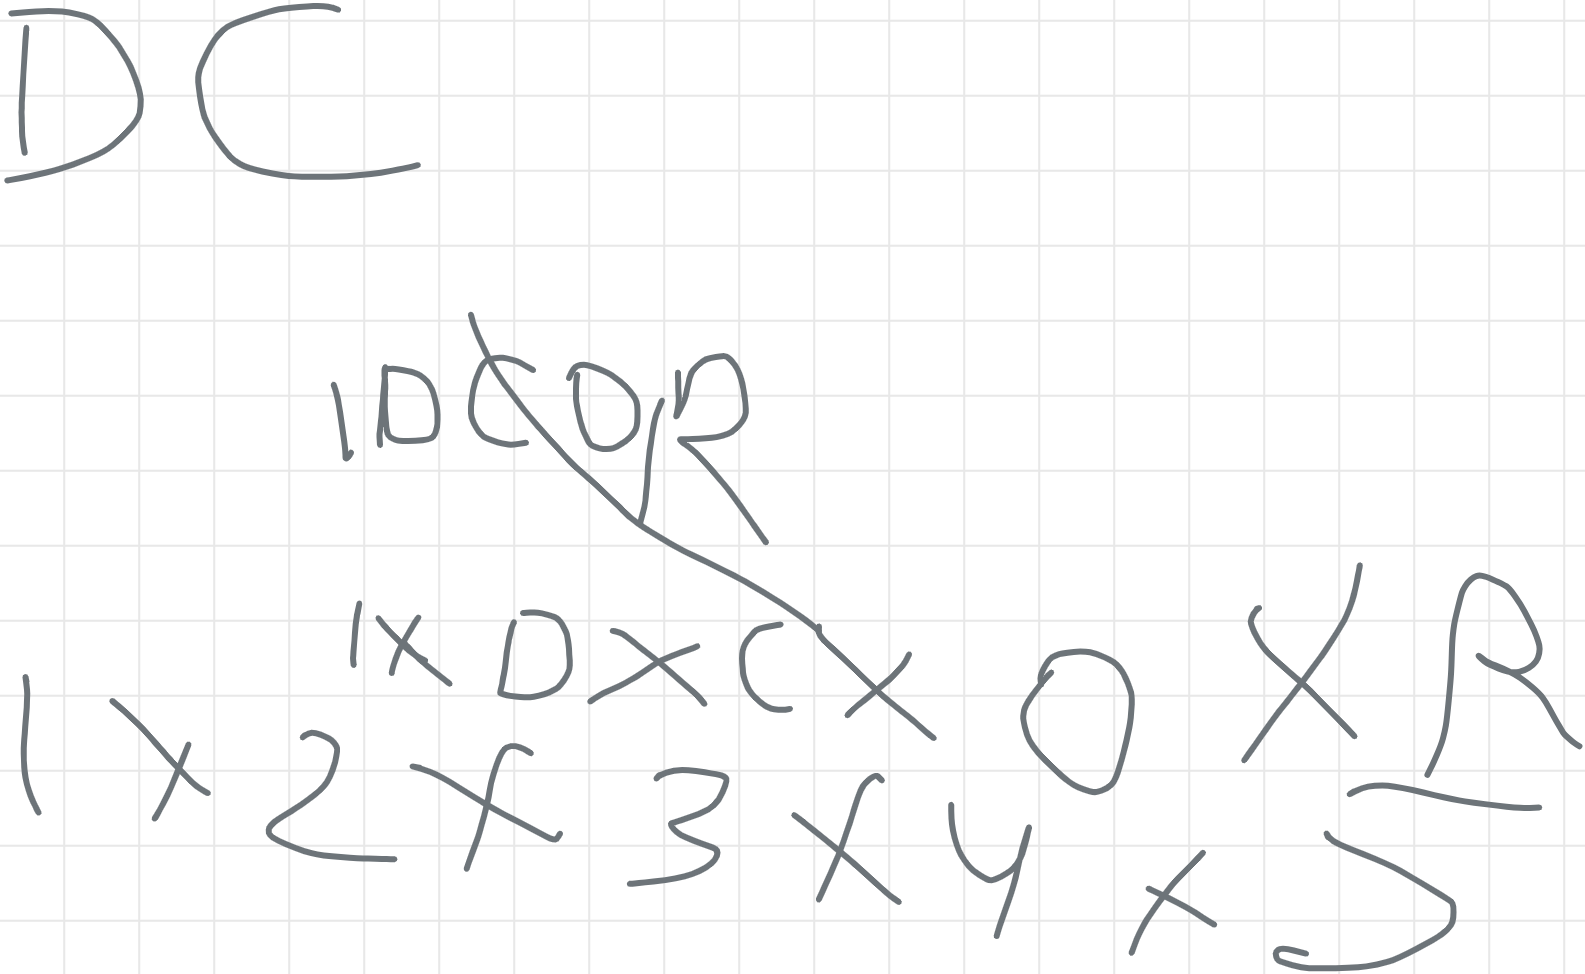 DC
1DCOR
1xDxCxOxR
1x2x3x4x5